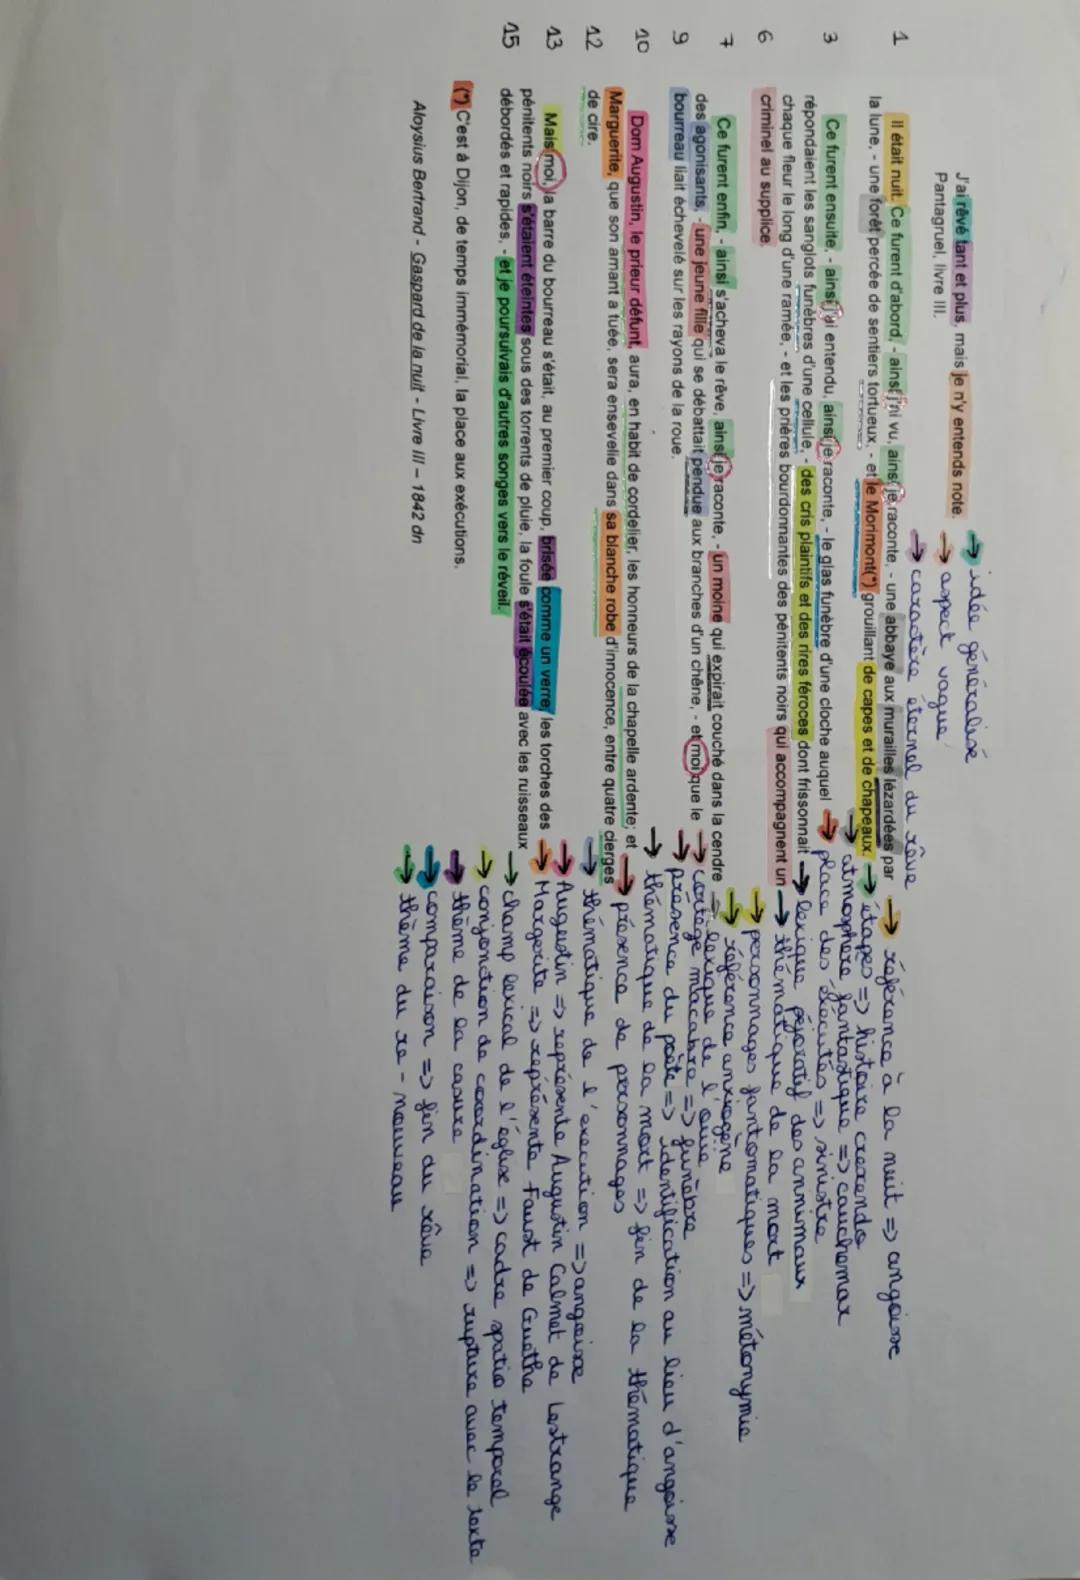 J'ai rêvé tant et plus, mais je n'y entends note.
Pantagruel, livre III.
→ idée généralisé
→ aspect vague
→ caractère éternel du rêve
1 Il était nuit. Ce furent d'abord, - ainsi j'ai vu, ainsi je raconte, - une abbaye aux murailles lézardées par
la lune, - une forêt percée de sentiers tortueux, - et le Morimont(*) grouillant de capes et de chapeaux.
3 Ce furent ensuite, - ainsi j'ai entendu, ainsi je raconte, - le glas funèbre d'une cloche auquel
répondaient les sanglots funèbres d'une cellule, - des cris plaintifs et des rires féroces dont frissonnait
chaque fleur le long d'une ramée, - et les prières bourdonnantes des pénitents noirs qui accompagnent un
6 criminel au supplice.
7 Ce furent enfin, - ainsi s'acheva le rêve, ainsi je raconte, - un moine qui expirait couché dans la cendre
des agonisants, - une jeune fille qui se débattait pendue aux branches d'un chêne, - et moi que le
9 bourreau liait échevelé sur les rayons de la roue.
10 Dom Augustin, le prieur défunt, aura, en habit de cordelier, les honneurs de la chapelle ardente; et
Marguerite, que son amant a tuée, sera ensevelie dans sa blanche robe d'innocence, entre quatre cierges
12 de cire.
13 Mais moi, la barre du bourreau s'était, au premier coup, brisée comme un verre, les torches des
pénitents noirs s'étaient éteintes sous des torrents de pluie, la foule s'était écoulée avec les ruisseaux
15 débordés et rapides, - et je poursuivais d'autres songes vers le réveil.
(*) C'est à Dijon, de temps immémorial, la place aux exécutions.
Aloysius Bertrand - Gaspard de la nuit - Livre III – 1842 dn
→ référence à la nuit => angoisse
→ étapes => histoire crescendo
→ atmosphère fantastique => cauchemar
→ place des éxécutés => sinistre
→ lexique péjoratif des annimaux
→ thématique de la mort
→ personnages fantomatiques => métonymie
→ référence anxiogène
→ lexique de l'ouïe
→ cortège macabre => funèbre
→ présence du poète => identification au lieu d'angoisse
→ thématique de la mort => fin de la thématique
→ présence de personnages
→ thématique de l'execution => angoisse
→ Augustin => représente Augustin Calmet de Lestrange
→ Margerite => représente Faust de Guethe
→ champ lexical de l'église => cadre spatio temporel
→ conjonction de coordination => rupture avec le texte
→ thème de la casure
→ comparaison => fin du rêve
→ thème du re-nouveau